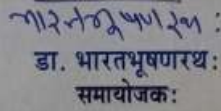 भारतभूषणरथ:
डा. भारतभूषणरथ:
समायोजक: